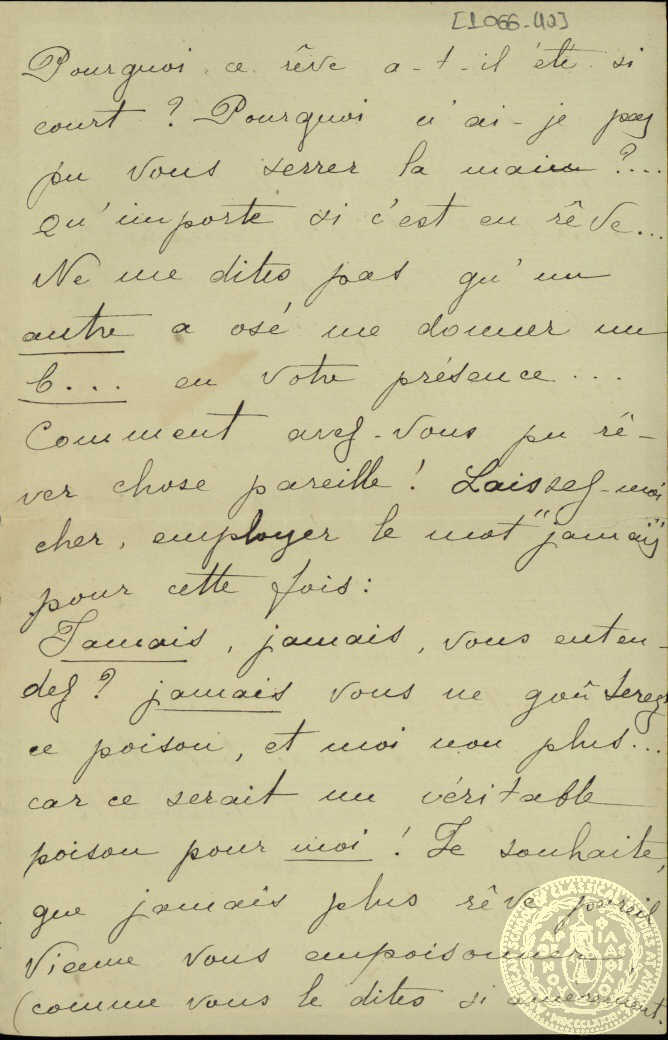 [1066-42]
Pourquoi ce rêve a-t-il été si
court ? Pourquoi n'ai-je pas
pu vous serrer la main ?...
Qu'importe si c'est en rêve...
Ne me dites pas qu'un
autre a osé me donner un
b... en votre présence...
Comment avez-vous pu rê-
ver chose pareille ! Laissez-moi
cher, employer le mot "jamais"
pour cette fois :
Jamais, jamais, vous enten-
dez ? jamais vous ne goûterez
ce poison, et moi non plus...
car ce serait un véritable
poison pour moi ! Je souhaite,
que jamais plus rêve pareil
vienne vous empoisonner,
(comme vous le dites si amèrement.